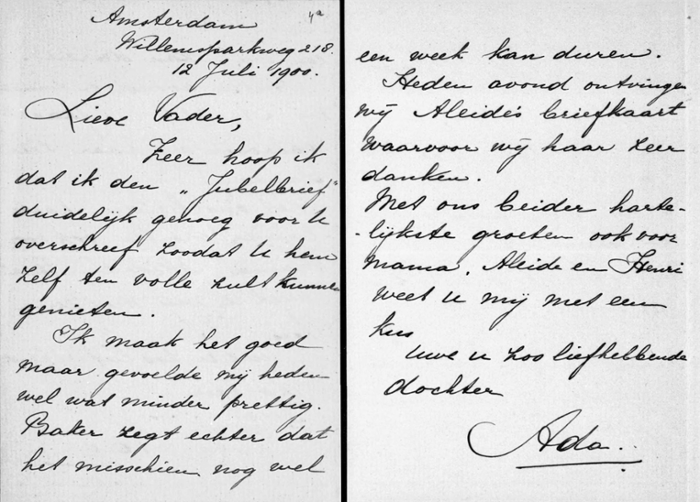 4a
Amsterdam
Willemsparkweg 218.
12 Juli 1900.
Lieve Vader,
Zeer hoop ik
dat ik den „Jubelbrief"
duidelijk genoeg voor U
overschreef zoodat U hem
zelf ten volle zult kunnen
genieten.
Ik maak het goed
maar gevoelde mij heden
wel wat minder prettig.
Baker zegt echter dat
het misschien nog wel
een week kan duren.
Heden avond ontvingen
wij Aleide's briefkaart
waarvoor wij haar zeer
danken.
Met ons beider harte-
-lijkste groeten ook voor
Mama, Aleide en Henri
weet U mij met een
kus
Uwe U zoo liefhebbende
dochter
Ada.